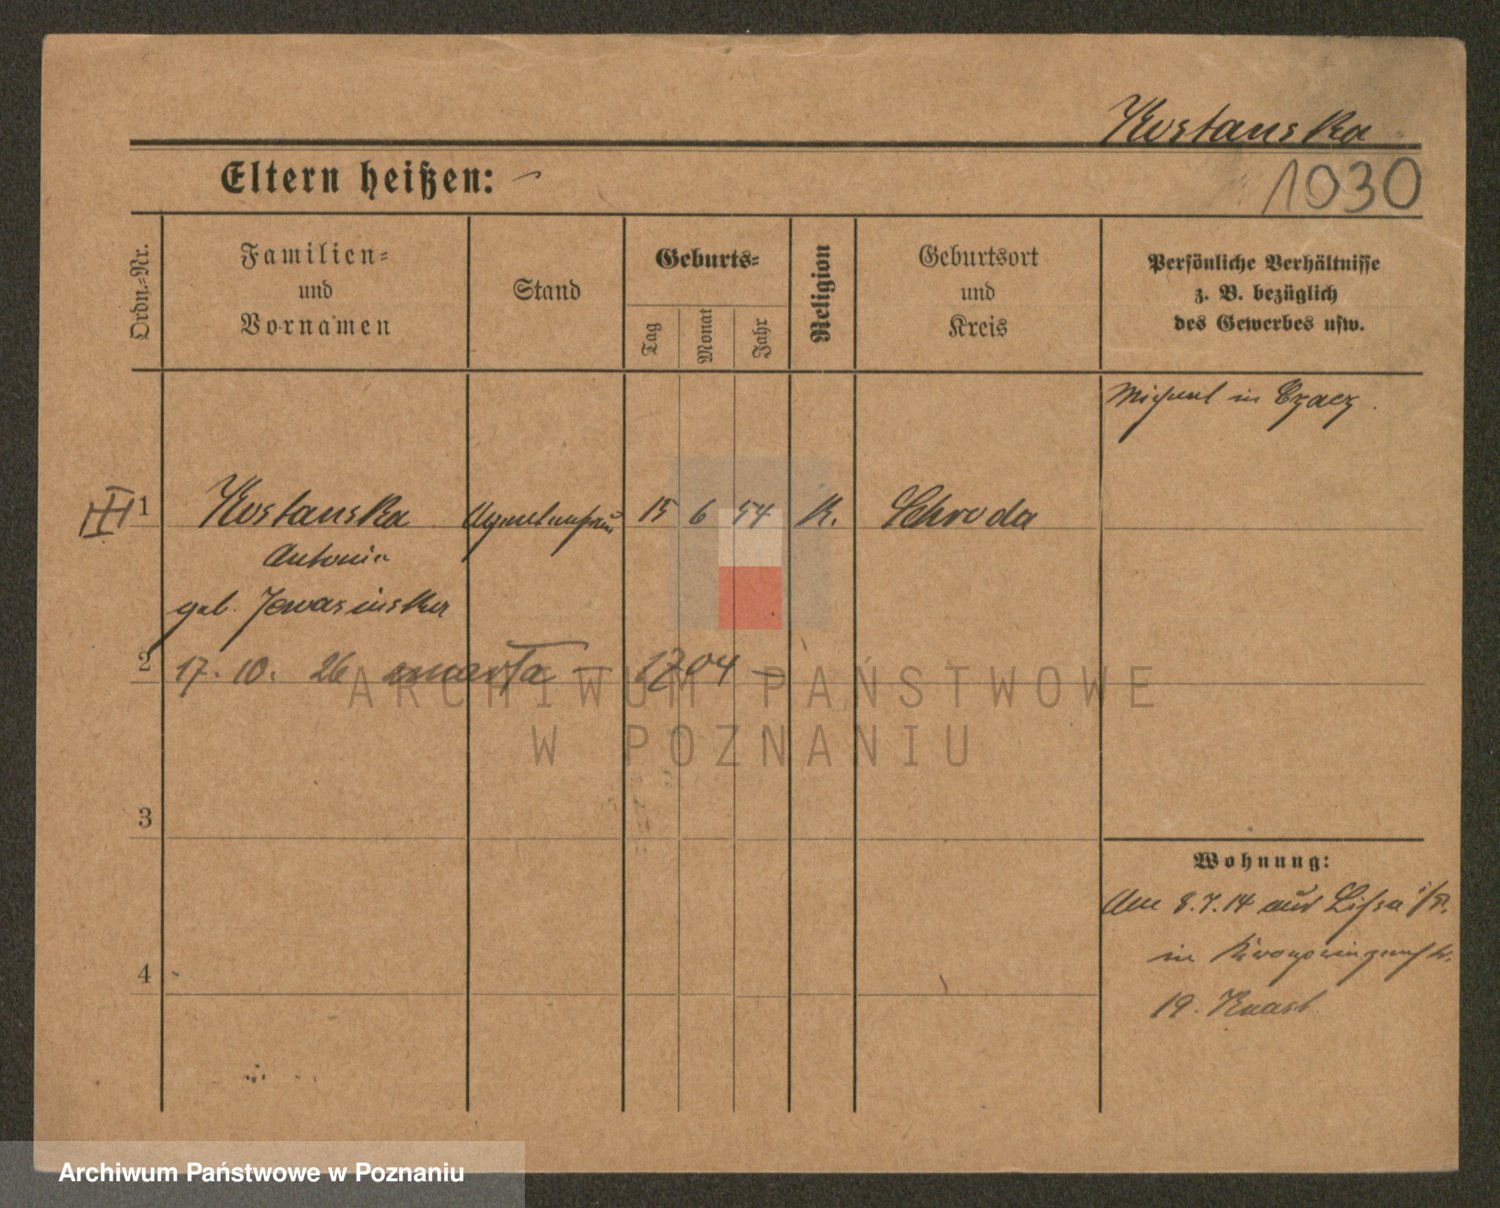 Kostanska
Eltern heißen: —
1030
Ordn.-Nr.
Familien-
und
Vornamen
Stand
Geburts-
Tag
Monat
Jahr
Religion
Geburtsort
und
Kreis
Persönliche Verhältnisse
z. B. bezüglich
des Gewerbes usw.
in Czacz.
1 Kostanska 15 6 54 K. Schroda
Antonie
geb.
2 17. 10. 26 umarła —
ARCHIWUM PAŃSTWOWE
W POZNANIU
3
Wohnung:
Am 8.7.14 aus Lissa i/P.
in
4
19.
Archiwum Państwowe w Poznaniu